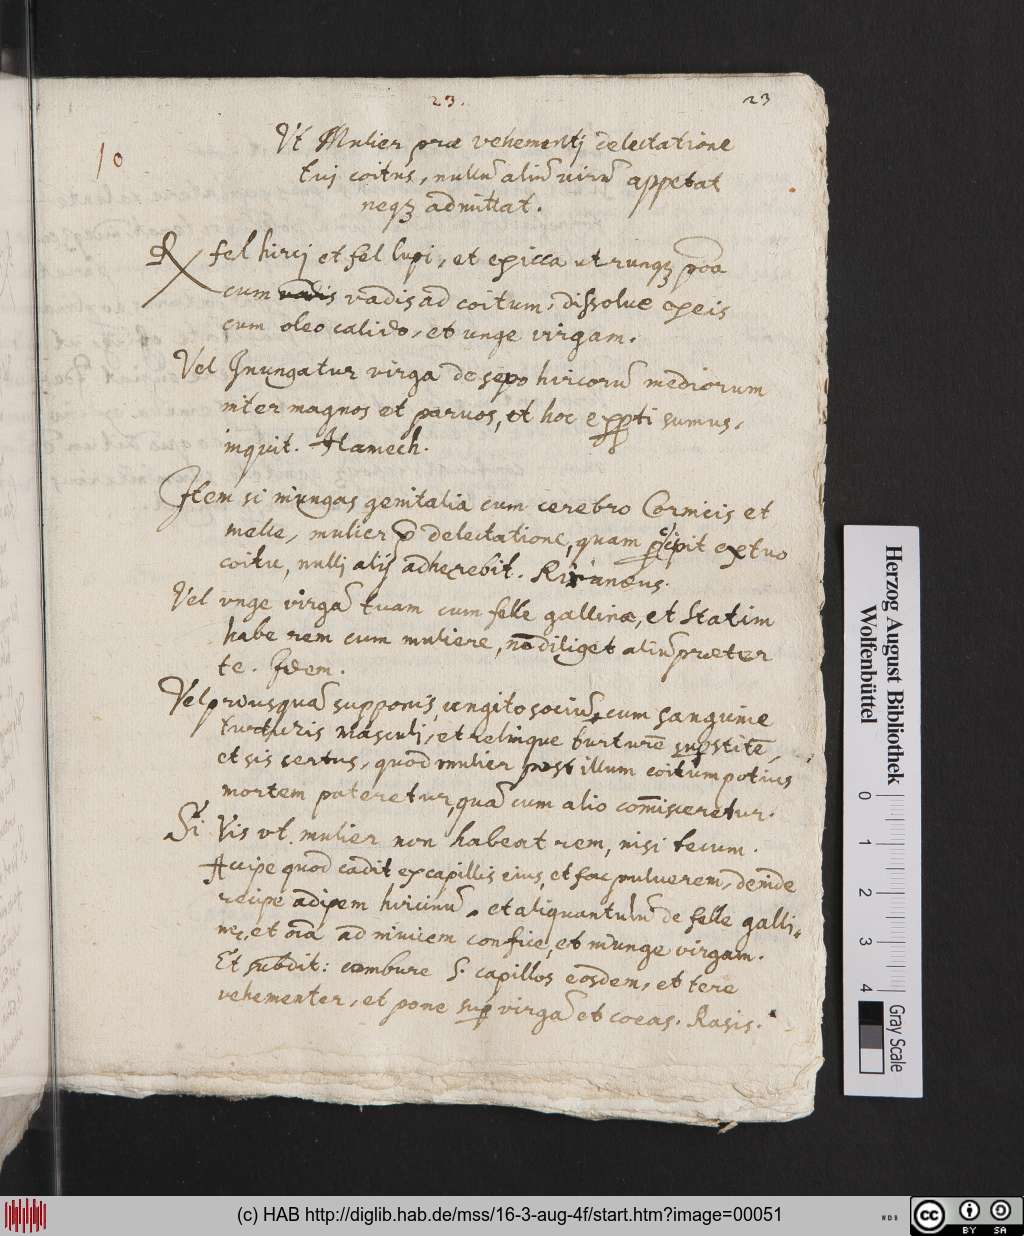 23.
23
10
Vt Mulier præ vehementj delectatione
tuj coitus, nullũ aliũ uirũ appetat
neqꝫ admittat.
℞ fel hircj et fel lupi, et exicca utrunqꝫ poã
cum vadis ad coitum, dissolue ex eis
cum oleo calido, et unge virgam.
Vel Inungatur virga de sepo hircorũ mediorum
inter magnos et paruos, et hoc exꝑti sumus,
inquit. Hamech.
Item si inungas genitalia cum cerebro Cornicis et
melle, mulier delectatione, quam ex tuo
coitu, nullj alij adherebit.
Vel vnge virgã tuam cum felle gallinæ, et Statim
habe rem cum muliere, nõ diliget aliũ præter
te. Idem.
Vel priusquã supponis, ungito sociũ cum sanguine
turturis masculi, et relinque turturẽ supstitẽ,
et sis certus, quod mulier post illum coitum potius
mortem pateretur, quã cum alio com̃isceretur.
Si Vis vt mulier non habeat rem, nisi tecum.
Accipe quod cadit ex capillis eius, et fac puluerem, deinde
recipe adipem hircinũ, et aliquantulũ de felle galli=
næ, et oĩa ad inuicem confice, et inunge virgam.
Et subdit: combure S. capillos eosdem, et tere
vehementer, et pone suꝑ virgã et coeas. Rasis.
Herzog August Bibliothek
Wolfenbüttel
0 1 2 3 4
Gray Scale
(c) HAB http://diglib.hab.de/mss/16-3-aug-4f/start.htm?image=00051
cc BY SA